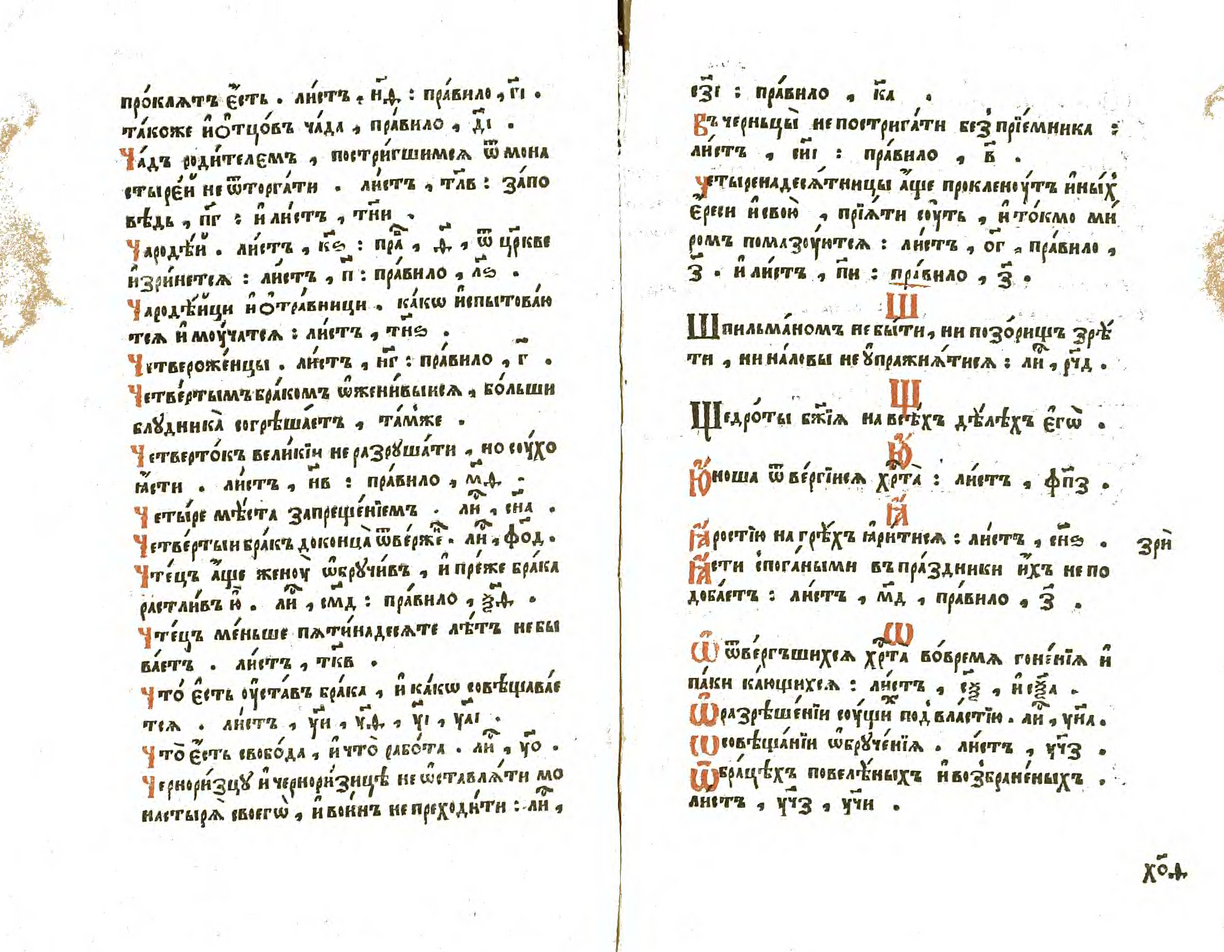 про́клѧтъ є҆́сть . ли́стъ , н҃ѳ : пра́вило , г҃і .
та́коже и҆ ѻ҆тцо́въ ча́да , пра́вило , д҃і .
Ча́дъ роди́телємъ , постри́гшимсѧ ѿ мона
стыре́й не ѿторга́ти . ли́стъ , тл҃в : за́по
вѣдь , п҃г : и҆ ли́стъ , тн҃и .
Чародѣ́й . ли́стъ , к҃ѕ : пра́в , ѳ҃ , ѿ цр҃кве
и҆зри́нетсѧ : ли́стъ , п҃ : пра́вило , л҃ѕ .
Чародѣ́йци и҆ ѻ҆тра́вници . ка́кѡ и҆спытова́ю
тсѧ и҆ моу́чатсѧ : ли́стъ , тн҃ѕ .
Четвероже́нцы . ли́стъ , н҃г : пра́вило , г҃ .
Четве́ртымъ бра́комъ ѡ҆жени́выисѧ , бо́льши
блудника̀ согрѣша́етъ , та́мже .
Четверто́къ вели́кїи не разруша́ти , но соухо
ꙗ҆́сти . ли́стъ , н҃в : пра́вило , м҃ѳ .
Четы́ре мѣ́ста запреще́нїемъ . ли́ , сн҃а .
Четве́ртыи бра́къ доконца̀ ѿве́рже . ли́ , фо҃д .
Чте́цъ а҆́ще женоу̀ ѡ҆бручи́въ , и҆ пре́же бра́ка
растли́въ ю҆̀ . ли́ , см҃д : пра́вило , ѯ҃ѳ .
Чте́цъ ме́ньше пѧти́надесѧте лѣ́тъ не бы
ва́етъ . ли́стъ , тк҃в .
Что́ є҆́сть оу҆ста́въ бра́ка , и҆ ка́кѡ совѣщава́е
тсѧ . ли́стъ , у҃и , у҃ѳ , у҃і , уа҃і .
Что̀ є҆́сть свобо́да , и҆ что̀ рабо́та . ли́ , у҃о .
Черно́ри́зцу и҆ чернори́зицѣ не ѡ҆ставлѧ́ти мо
настырѧ̀ своегѡ̀ , и҆ во́инъ не преходи́ти : ли́ ,
сз҃і : пра́вило , к҃а .
Въ черньцы̀ не пострига́ти без̾ прїе́мника :
ли́стъ , си҃і : пра́вило , в҃ .
Четыренадесѧ́тницы а҆́ще проклену́тъ и҆ны́х
є҆́реси и҆ свою̀ , прїѧ́ти соу́ть , и҆ то́кмо мѵ́
ромъ помазоу́ютсѧ : ли́стъ , о҃г , пра́вило ,
з҃ . и҆ ли́стъ , п҃и : пра́вило , з҃ .
Ш
Шпильма́номъ не бы́ти , ни позо́рищъ зрѣ́
ти , ни на ловы не оу҆пражнѧ́тисѧ : ли́ , рч҃д .
Щ
Щедро́ты бж҃їѧ на всѣ́хъ дѣ́лѣхъ є҆гѡ̀ .
Ю҆
Ю҆́ноша ѿве́ргїисѧ хрⷭ҇та̀ : ли́стъ , фп҃з .
Ꙗ҆
Ꙗ҆́ростїю на грѣ́хъ ꙗ҆ри́тисѧ : ли́стъ , сн҃ѕ .
зрѝ
Ꙗ҆́сти с пога́ными въ пра́здники и҆́хъ не по
доба́етъ : ли́стъ , м҃д , пра́вило , з҃ .
Ѡ
Ѡ҆ ѿве́ргъшихсѧ хрⷭ҇та во́времѧ гоне́нїѧ и҆
па́ки ка́ющихсѧ : ли́стъ , сѯ҃ , и҆ сѯ҃а .
Ѡ҆ разрѣше́нїи соу́щих под̾ вла́стїю . ли́ , ун҃а .
Ѡ҆ совѣща́нїи ѡ҆бруче́нїѧ . ли́стъ , уч҃з .
Ѡ҆ бра́цѣхъ повелѣ́ныхъ и҆ воз̾бране́ныхъ .
ли́стъ , уч҃з , уч҃и .
хо҃ѳ